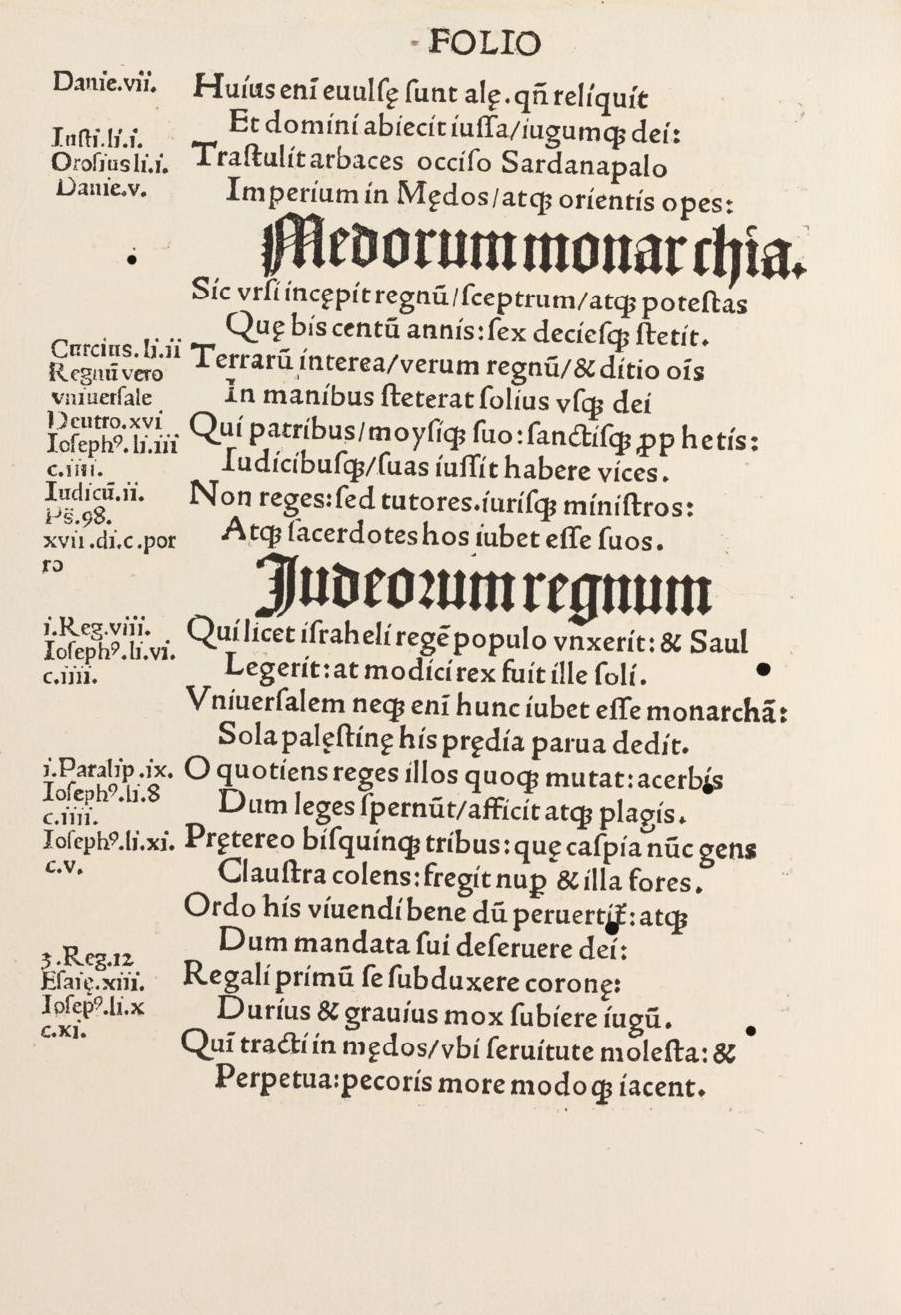 FOLIO
Danie.vii.
Huius enī euulſę ſunt alę.qn̄ reliquit
Et domini abiecit iuſſa/iugumqꝫ dei:
Inſti.li.i.
Oroſius li.i.
Traſtulit arbaces occiſo Sardanapalo
Danie.v.
Imperium in Mędos/atqꝫ orientis opes:
Medorum monarchia.
Sic vrſi incępit regnū/ſceptrum/atqꝫ poteſtas
Quę bis centū annis:ſex decieſqꝫ ſtetit.
Curcius.li.ii
Terrarū interea/verum regnū/& ditio oīs
Regnū vero
vniuerſale
In manibus ſteterat ſolius vſqꝫ dei
Deutro.xvi
Qui patribus/moyſiqꝫ ſuo:ſanctiſqꝫ ꝓphetis:
Ioſephꝰ.li.iii
c.iiii.
Iudicibuſqꝫ/ſuas iuſſit habere vices.
Iudicū.ii.
Non reges:ſed tutores.iuriſqꝫ miniſtros:
Ps̄.98.
xvii.di.c.por
ro
Atqꝫ ſacerdotes hos iubet eſſe ſuos.
Judeoꝛum regnum
i.Reg.viii.
Qui licet iſraheli regē populo vnxerit:& Saul
Ioſephꝰ.li.vi.
c.iiii.
Legerit:at modici rex fuit ille ſoli.
Vniuerſalem neqꝫ enī hunc iubet eſſe monarchā:
Sola paleſtinę his prędia parua dedit.
i.Paralip.ix.
O quotiens reges illos quoqꝫ mutat:acerbis
Ioſephꝰ.li.8
c.iiii.
Dum leges ſpernūt/afficit atqꝫ plagis.
Ioſephꝰ.li.xi.
Prętereo biſquinqꝫ tribus:quę caſpia nūc gens
c.v.
Clauſtra colens:fregit nuꝑ & illa fores.
Ordo his viuendi bene dū peruertit̄:atqꝫ
Dum mandata ſui deſeruere dei:
3.Reg.12
Eſaię.xiii.
Regali primū ſe ſubduxere coronę:
Ioſepꝰ.li.x
c.xi.
Durius & grauius mox ſubiere iugū.
Qui tracti in mędos/vbi ſeruitute moleſta:&
Perpetua:pecoris more modoqꝫ iacent.